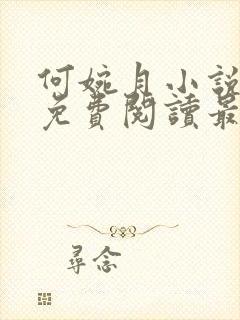 何婉月小說
免費閱讀最
尋念